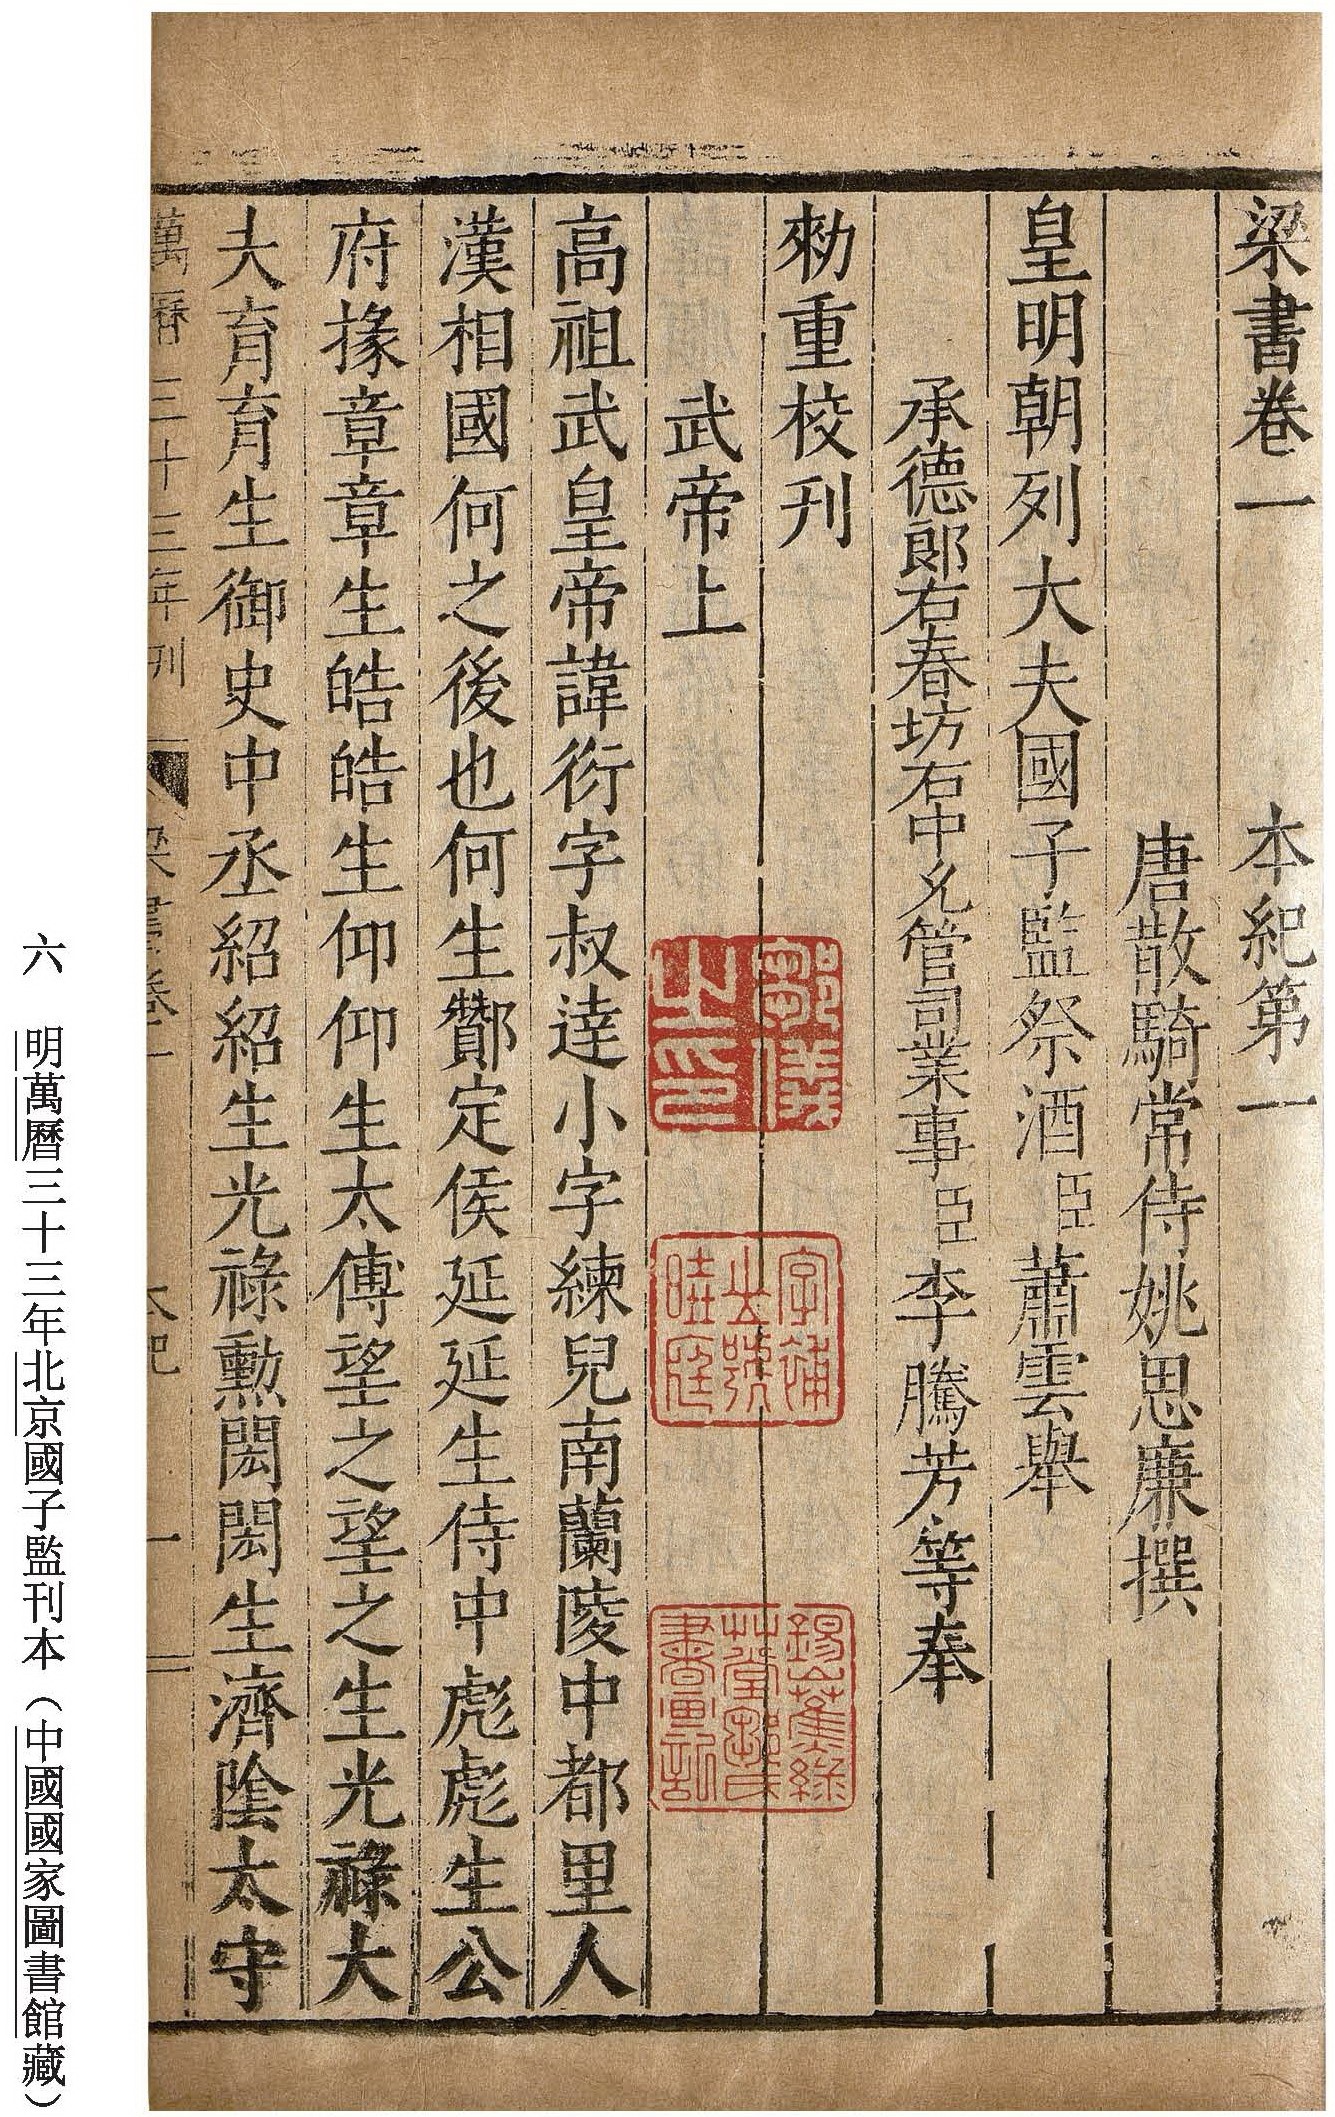 梁書卷一 本紀第一
唐散騎常侍姚思廉撰
皇明朝列大夫國子監祭酒臣蕭雲舉
承德郎右春坊右中允管司業事臣李騰芳等奉
勑重校刊
武帝上
高祖武皇帝諱衍字叔達小字練兒南蘭陵中都里人
漢相國何之後也何生酇定侯延延生侍中彪彪生公
府掾章章生皓皓生仰仰生太傅望之望之生光祿大
夫育育生御史中丞紹紹生光祿勳閎閎生濟陰太守
萬曆三十三年刊 梁書卷一 本紀 一
鄭儀之印
字藹士號曉庭
錫山蕉綠草堂鄒氏書畫記
六 明萬曆三十三年北京國子監刊本（中國國家圖書館藏）